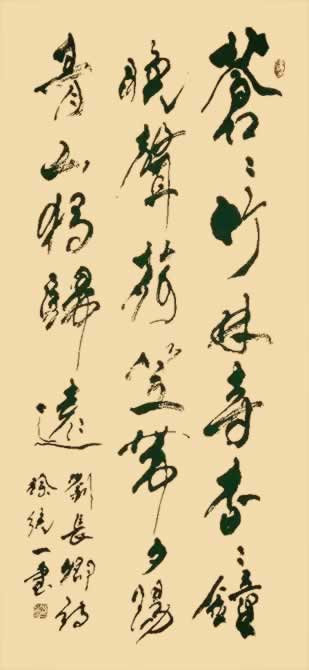 蒼々竹林寺杳々鐘
晚聲荷笠帶夕陽
青山獨歸遠
劉長卿詩
徐一書